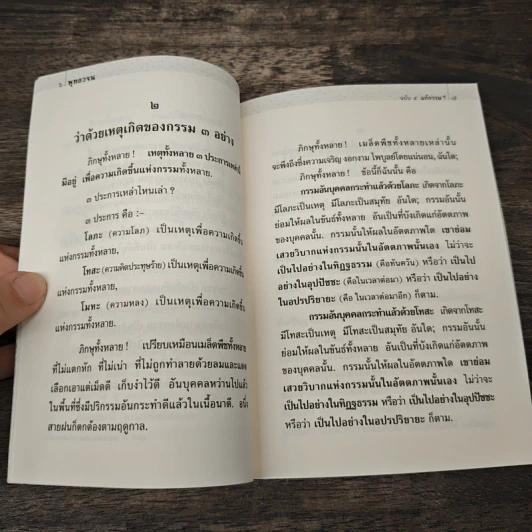 ๖ พุทธวจน
๒
ว่าด้วยเหตุเกิดของกรรม ๓ อย่าง
ภิกษุทั้งหลาย ! เหตุทั้งหลาย ๓ ประการเหล่านี้
มีอยู่ เพื่อความเกิดขึ้นแห่งกรรมทั้งหลาย.
๓ ประการเหล่าไหนเล่า ?
๓ ประการ คือ :-
โลภะ (ความโลภ) เป็นเหตุเพื่อความเกิดขึ้น
แห่งกรรมทั้งหลาย,
โทสะ (ความคิดประทุษร้าย) เป็นเหตุเพื่อความเกิดขึ้น
แห่งกรรมทั้งหลาย,
โมหะ (ความหลง) เป็นเหตุเพื่อความเกิดขึ้น
แห่งกรรมทั้งหลาย.
ภิกษุทั้งหลาย ! เปรียบเหมือนเมล็ดพืชทั้งหลาย
ที่ไม่แตกหัก ที่ไม่เน่า ที่ไม่ถูกทำลายด้วยลมและแดด
เลือกเอาแต่เม็ดดี เก็บงำไว้ดี อันบุคคลหว่านไปแล้ว
ในพื้นที่ซึ่งมีปริกรรมอันกระทำดีแล้วในเนื้อนาดี. อนึ่ง
สายฝนก็ตกต้องตามฤดูกาล.
ฉบับ ๕ แก้กรรม ? ๗
ภิกษุทั้งหลาย ! เมล็ดพืชทั้งหลายเหล่านั้น
จะพึงถึงซึ่งความเจริญ งอกงาม ไพบูลย์โดยแน่นอน, ฉันใด;
ภิกษุทั้งหลาย ! ข้อนี้ก็ฉันนั้น คือ
กรรมอันบุคคลกระทำแล้วด้วยโลภะ เกิดจากโลภะ
มีโลภะเป็นเหตุ มีโลภะเป็นสมุทัย อันใด; กรรมอันนั้น
ย่อมให้ผลในขันธ์ทั้งหลาย อันเป็นที่บังเกิดแก่อัตตภาพ
ของบุคคลนั้น. กรรมนั้นให้ผลในอัตตภาพใด เขาย่อม
เสวยวิบากแห่งกรรมนั้นในอัตตภาพนั้นเอง ไม่ว่าจะ
เป็นไปอย่างในทิฏฐธรรม (คือทันควัน) หรือว่า เป็นไป
อย่างในอุปปัชชะ (คือ ในเวลาต่อมา) หรือว่า เป็นไปอย่าง
ในอปรปริยายะ (คือ ในเวลาต่อมาอีก) ก็ตาม.
กรรมอันบุคคลกระทำแล้วด้วยโทสะ เกิดจากโทสะ
มีโทสะเป็นเหตุ มีโทสะเป็นสมุทัย อันใด; กรรมอันนั้น
ย่อมให้ผลในขันธ์ทั้งหลาย อันเป็นที่บังเกิดแก่อัตตภาพ
ของบุคคลนั้น. กรรมนั้นให้ผลในอัตตภาพใด เขาย่อม
เสวยวิบากแห่งกรรมนั้นในอัตตภาพนั้นเอง ไม่ว่าจะ
เป็นไปอย่างในทิฏฐธรรม หรือว่า เป็นไปอย่างในอุปปัชชะ
หรือว่า เป็นไปอย่างในอปรปริยายะ ก็ตาม.